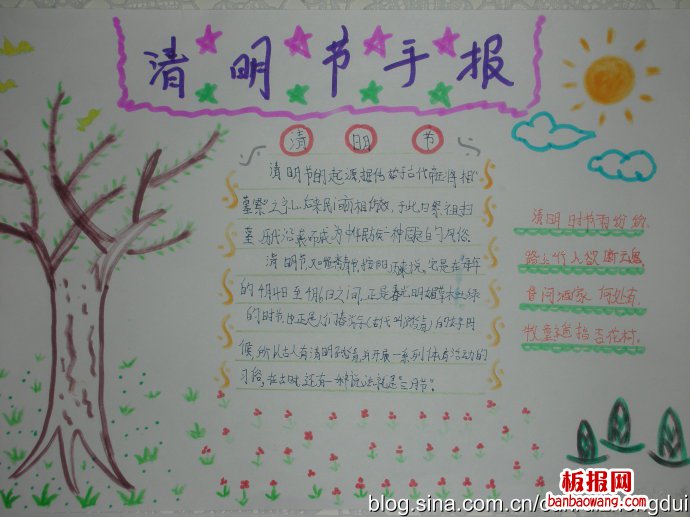 清明节手报
清 明 节
清明节的起源据传始于古代帝王将相
墓祭之之后来民间相仿效于此日祭祖扫
墓历代沿袭而成为中华民族一种固定的风俗
清明节又阳历来说它是在每年
的4月4日至4月6日之间,正是春光明媚草木吐绿
的时节也正是人们春游(古代叫踏青)的好时
候,所以古人有清明踏青,并开展一系列体育活动的
习俗,在古时还有一种说法就是"三月节"。
清明时节雨纷纷,
路上行人欲断魂
借问酒家何处有
牧童遥指杏花村.
板报网
banbaowang.com
blog.sina.com.cn/